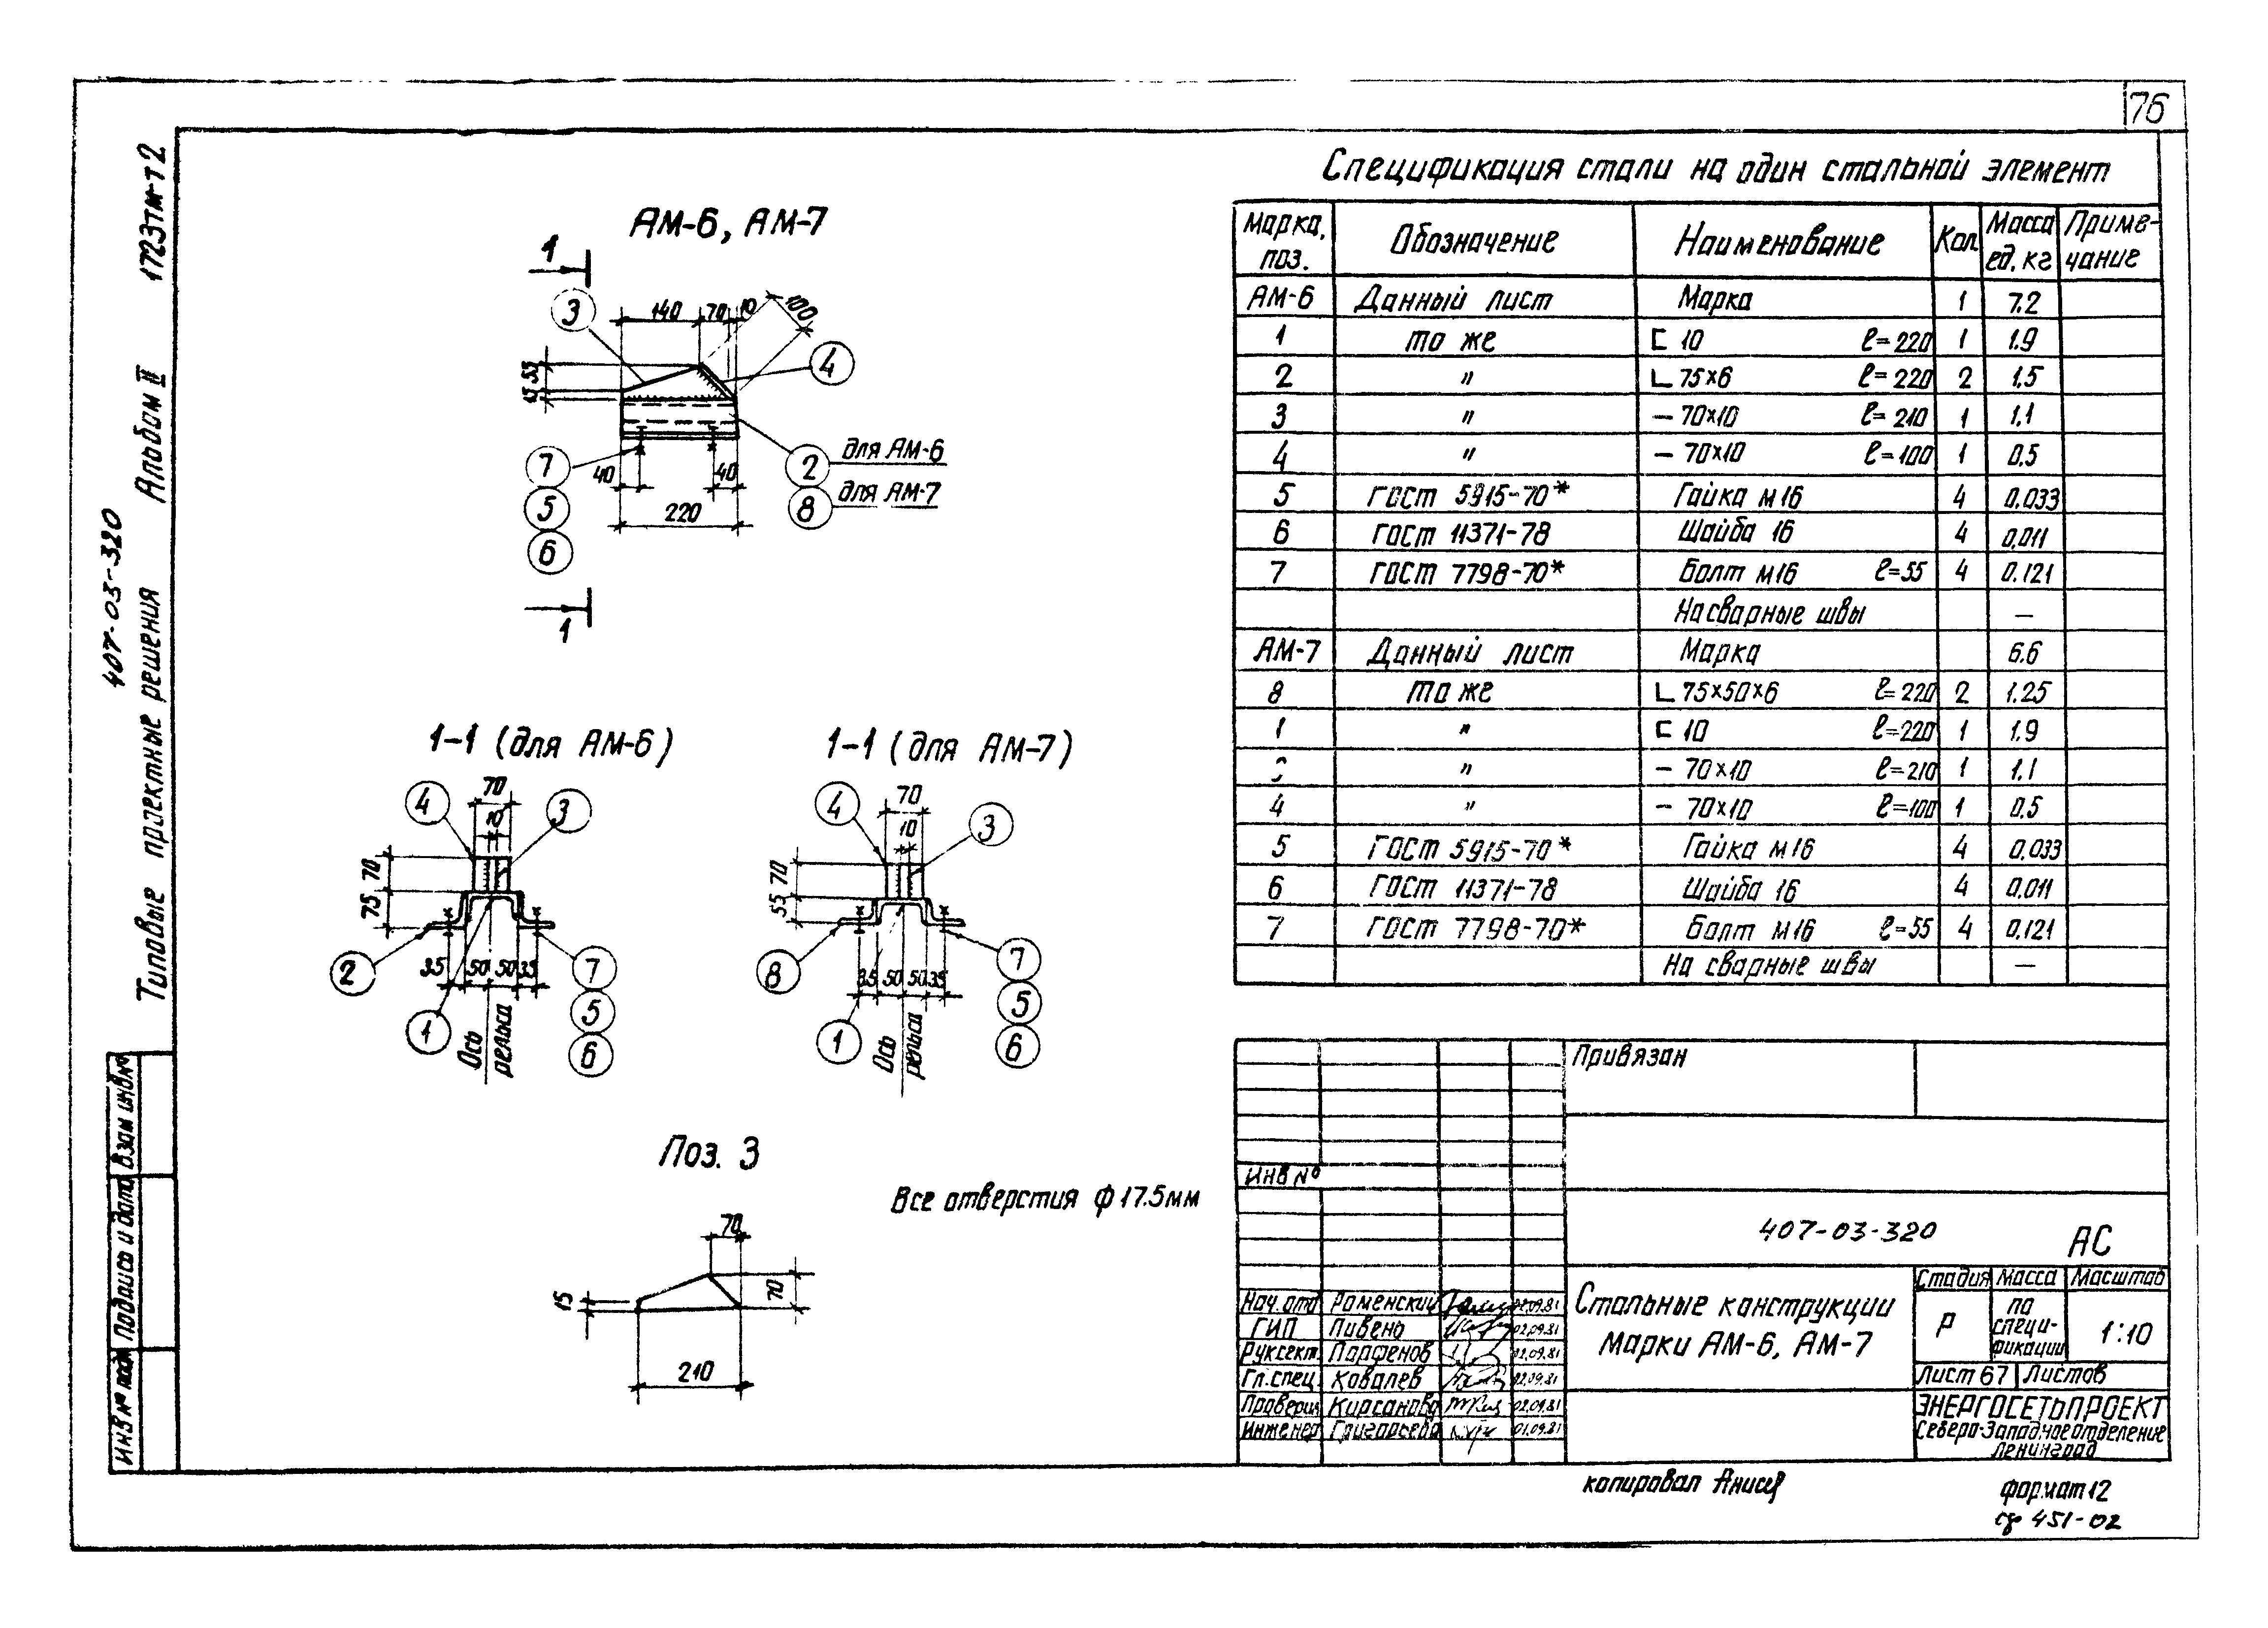 76
407-03-320
Типовые проектные решения Альбом II 1723тм-т2
АМ-6, АМ-7
1
3
140
70
10
100
4
55
15
7
5
6
40
40
220
2 для АМ-6
8 для АМ-7
1
1-1 (для АМ-6)
4
70
10
3
70
75
2
35 50 50 35
7
5
6
1
Ось рельса
1-1 (для АМ-7)
4
70
10
3
70
55
8
35 50 50 35
7
5
6
1
Ось рельса
Поз. 3
70
15
70
210
Все отверстия ф 17.5мм
Спецификация стали на один стальной элемент
Марка, поз. Обозначение Наименование Кол Масса ед. кг Приме-чание
АМ-6 Данный лист Марка 1 7.2
1 То же [ 10 ℓ=220 1 1.9
2 " L 75×6 ℓ=220 2 1.5
3 " — 70×10 ℓ=210 1 1.1
4 " — 70×10 ℓ=100 1 0.5
5 ГОСТ 5915-70* Гайка м16 4 0.033
6 ГОСТ 11371-78 Шайба 16 4 0.011
7 ГОСТ 7798-70* Болт м16 ℓ=55 4 0.121
На сварные швы —
АМ-7 Данный лист Марка 6.6
8 То же L 75×50×6 ℓ=220 2 1.25
1 " [ 10 ℓ=220 1 1.9
" — 70×10 ℓ=210 1 1.1
4 " — 70×10 ℓ=100 1 0.5
5 ГОСТ 5915-70* Гайка м16 4 0.033
6 ГОСТ 11371-78 Шайба 16 4 0.011
7 ГОСТ 7798-70* Болт м16 ℓ=55 4 0.121
На сварные швы —
Привязан
Инв №
407-03-320 АС
Нач.отд Роменский 02.09.81
ГИП Пивень 02.09.81
Рук.сект. Парфенов 02.09.81
Гл.спец. Ковалев 02.09.81
Проверил Кирсанова 02.09.81
Инженер Григорьева 01.09.81
Стальные конструкции
Марки АМ-6, АМ-7
Стадия Масса Масштаб
Р по специ-фикации 1:10
Лист 67 Листов
ЭНЕРГОСЕТЬПРОЕКТ
Северо-Западное отделение
Ленинград
Взам инв№
Подпись и дата
Инв № подл
копировал
формат 12
сф 451-02